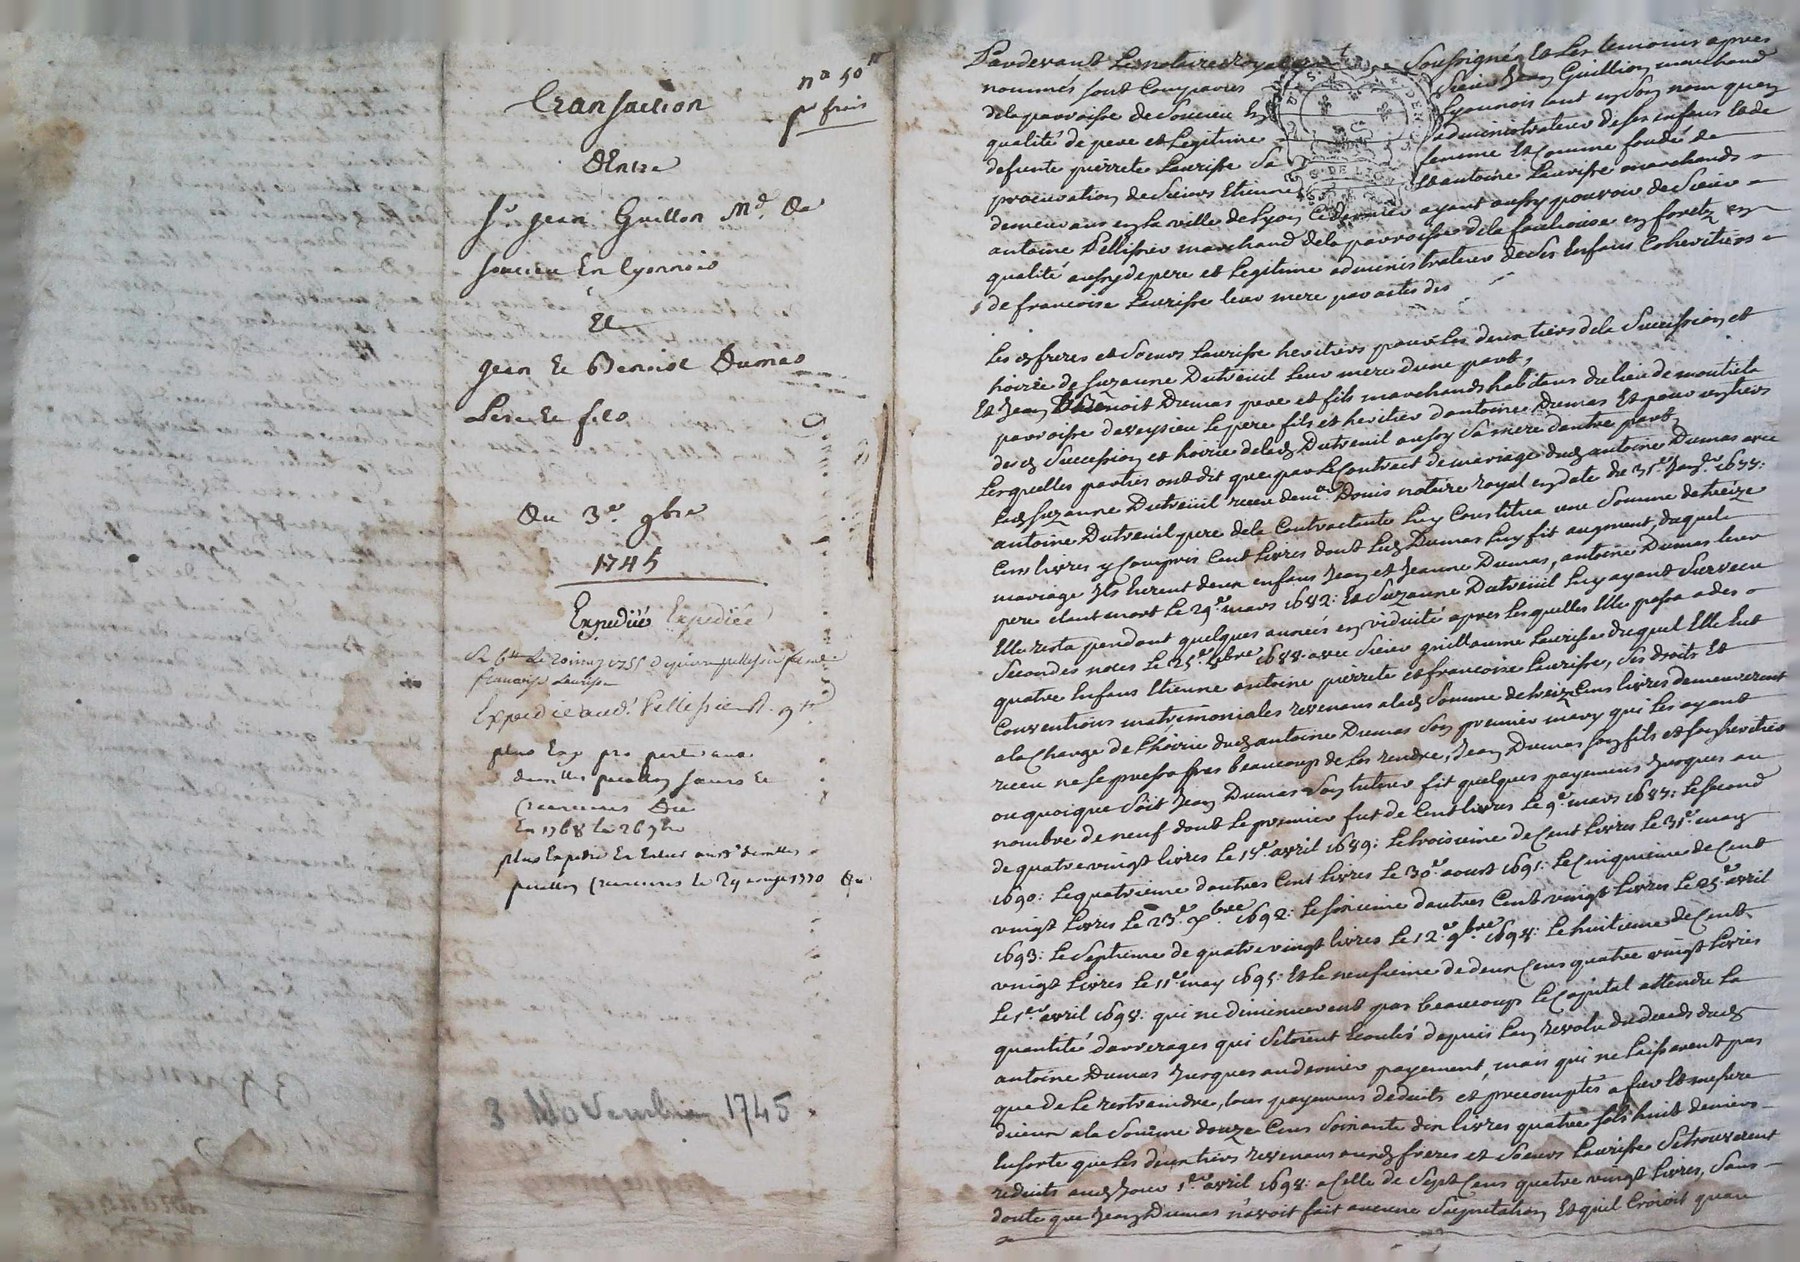 nº 50
pr frais
Transaction
D'Entre
Sr jean Guillon Md. De
Soucieu En lyonnois
Et
jean Et Benoist Dumas
Pere Et fils
Du 3e 9bre
1745
Expediée Expediée
francoise Laurisse
Expedie aud. Pellissier
En 1768 le 26 9bre
3 Novembre 1745
Pardevant Le notaire royal Soussigné Et Les temoins apres
nommés sont Comparus Sieur Jean Guillion marchand
de la parroisse de Soucieu En Lyonnois tant en son nom quen
qualité de pere et Legitime administrateur de ses enfans Et de
defunte pierrete Laurisse Sa femme Et Comme fondé de
procuration de Sieurs Etienne Et antoine Laurisse marchands
demeurans en la ville de Lyon Ce dernier ayant aussy pouvoir de Sieur
antoine Pellissier marchand de la parroisse de la fouliouse en forets en
qualité aussy de pere et Legitime administrateur de Ses Enfans Coheritiers
de francoise Laurisse leur mere par actes des
Les d freres et Soeurs Laurisse heritiers pour Les deux tiers de la Succession et
hoirie de Suzanne Dutreuil Leur mere d'une part,
Et Jean Et Benoit Dumas pere et fils marchands habitans du lieu de
parroisse d'aveysieu Le pere fils et heritier d'antoine Dumas Et pour un tiers
des d Succession et hoirie de lad Dutreuil aussy Sa mere d'autre part,
Lesquelles parties ont dit que par Le Contract de mariage dud antoine Dumas avec
Lad Suzanne Dutreüil receu de me Donis notaire royal en date du 31e
antoine Dutreuil pere de la Contractante Luy Constitua une Somme de treize
Cens livres y Compris Cent livres dont Led Dumas Luy fit augment, duquel
mariage Ils heurent deux enfans Jean et Jeanne Dumas, antoine Dumas leur
pere etant mort Le 29e mars 1682: Et Suzanne Dutreüil Luy ayant Survecu
Elle resta pendant quelques années en viduité apres Lesquelles Elle passa a des
Secondes noces Le 25e 1688 avec Sieur guillaume Laurisse duquel Elle Eut
quatre Enfans Etienne antoine pierrete et francoise Laurisse, Ses droits Et
Conventions matrimoniales revenans a lad Somme de treize Cens livres demeurerent
a la Charge de L'hoirie dud antoine Dumas Son premier mary qui Les ayant
receu ne Se pressa pas beaucoup de Les rendre, Jean Dumas Son fils et Son heritier
ou quoique Soit Jean Dumas Son tuteur fit quelques payemens Jusques au
nombre de neuf dont Le premier fut de Cent livres Le 9e mars 1687: Le Second
de quatre vingt livres Le 14e avril 1689: Le troisieme de Cent livres Le 31e may
1690: Le quatrieme d'autres Cent livres Le 30e aoust 1691: Le Cinquieme de Cent
vingt Livres Le 23e 1692: Le Sixieme d'autres Cent vingt Livres Le 25e avril
1693: Le Septieme de quatre vingt livres Le 12e 9bre 1694: Le huitieme de Cent
vingt Livres Le 11e may 1695: Et Le neufvieme de deux Cens quatre vingt livres
Le 1er avril 1698: qui ne diminuerent pas beaucoup Le Capital attendu La
quantité d'arrerages qui S'etoient Ecoulés depuis L'an revolu du decès dud
antoine Dumas Jusques au dernier payement, mais qui ne Laisserent pas
que de Le restraindre, tous payemens deduits et precomptés a fur Et mesure
a la Somme douze Cens Soixante dix livres quatre Sols huit deniers
Ensorte que Les deux tiers revenans auxd freres et Soeurs Laurisse Se trouverent
reduits aud Jour 1er avril 1698: a Celle de Sept Cens quatre vingt Livres, Sans
doute que Jean Dumas n'avoit fait aucune Suputation Et quil Croioit quau